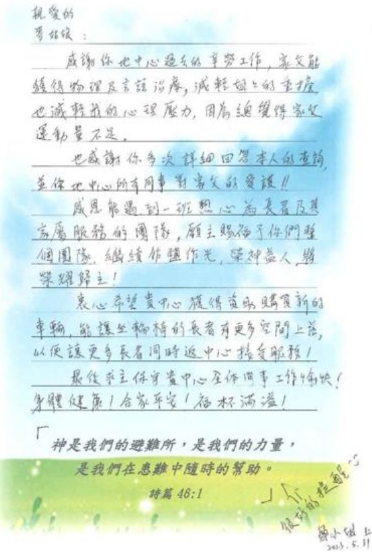 親愛的
姑娘:
感謝你地中心過去的辛勞工作,家父能
獲得物理及言語治療,減輕
也減輕我的心理壓力,因為總覺得家父
運動量不足。
也感謝你多次詳細回答本人的查詢,
並你地中心所有同事對家父的愛護!!
感恩能遇到一班熱心為長者及其
家屬服務的團隊,願主賜福予你們整
個團隊,繼續作鹽作光,榮神益人,
榮耀歸主!
衷心希望貴中心獲得資助購買新的
車輛,能讓坐輪椅的長者有更多空間上落,
以便讓更多長者同時返中心接受服務!
最後求主保守貴中心全体同事工作愉快!
身體健康!合家平安!福杯滿溢!
「神是我們的避難所,是我們的力量,
是我們在患難中隨時的幫助。
詩篇 46:1」
很好的提醒
小姐 上
2023.5.19